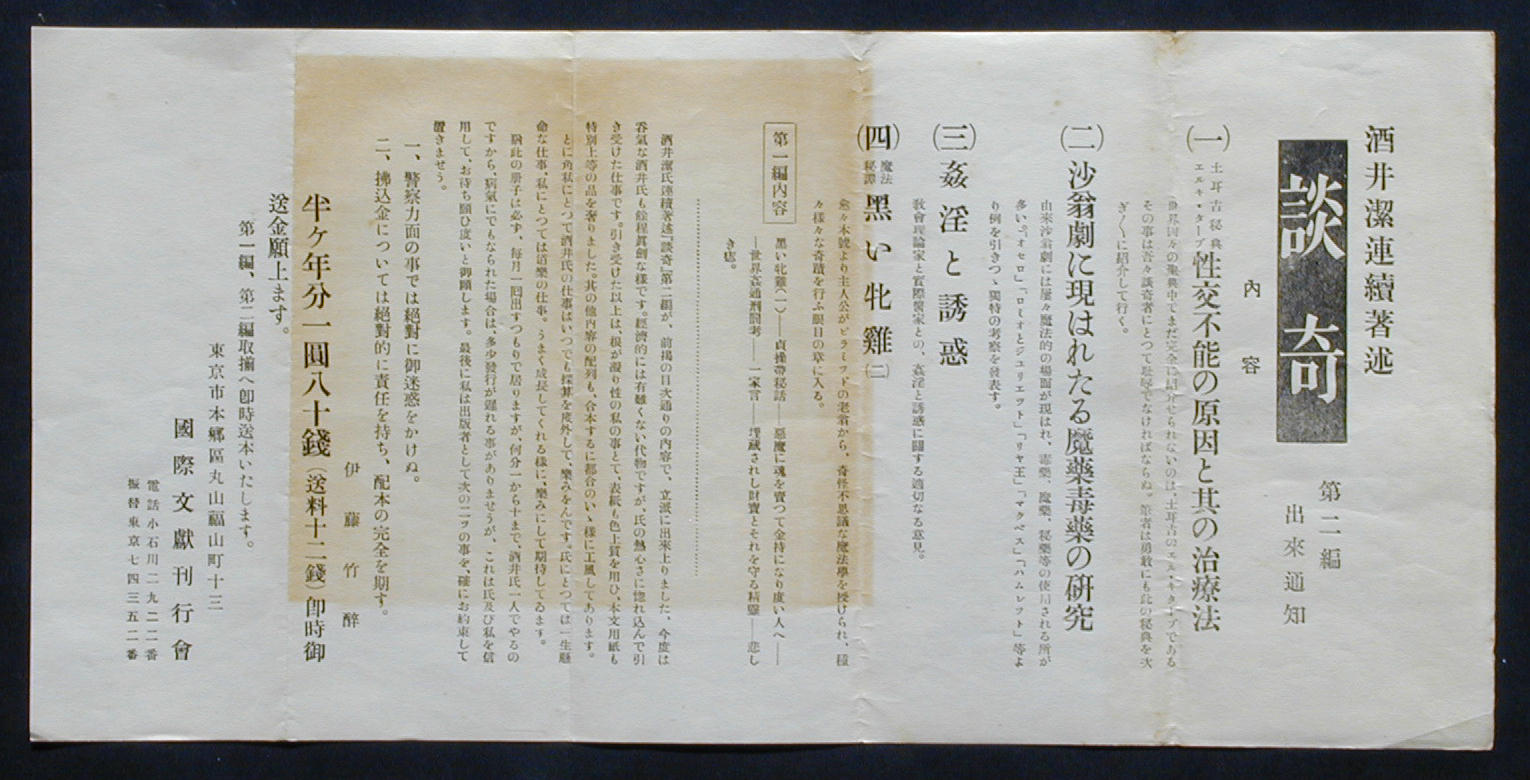 酒井潔連續著述
談奇
第二編
出來通知
內容
(一)土耳古秘典エルキ・ターブ性交不能の原因と其の治療法
世界國々の聖典中でまだ完全に紹介せられないのは、土耳古のエル・キターブである
その事は吾々談奇者にとつて恥辱でなければならぬ。筆者は勇敢にも此の秘典を次
ぎ〱に紹介して行く。
(二)沙翁劇に現はれたる魔藥毒藥の研究
由來沙翁劇には屢々魔法的の場面が現はれ、毒藥、魔藥、秘藥等の使用される所が
多い。「オセロ」「ロミオとジユリエツト」「リヤ王」「マクベス」「ハムレツト」等よ
り例を引きつゝ獨特の考察を發表す。
(三)姦淫と誘惑
敎會理論家と實際醫家との、姦淫と誘惑に關する適切なる意見。
(四)魔法秘譚黑い牝雞(二)
愈々本號より主人公がピラミツドの老翁から、奇怪不思議な魔法學を授けられ、種
々樣々な奇蹟を行ふ眼目の章に入る。
第一編內容
黑い牝雞(一)――貞操帶秘話――惡魔に魂を賣つて金持になり度い人へ――
―世界姦通刑罰考――一家言――埋藏され し財寶とそれを守る精靈――悲し
き塔。
酒井潔氏連續著述『談奇』第二編が、前揭の目次通りの內容で、立派に出來上りました、今度は
呑氣な酒井氏も餘程眞劍な樣です。經濟的には有難くない代物ですが、氏の熱心さに惚れ込んで引
き受けた仕事です。引き受けた以上は、根が凝り性の私の事とて、表紙も色上質を用ひ、本文用紙も
特別上等の品を奢りました。其の他內容の配列も、合本するに都合のいゝ樣に工風してあります。
とに角私にとつて酒井氏の仕事はいつでも採算を度外して、樂みなんです。氏にとつては一生懸
命な仕事、私にとつては道樂の仕事、うまく成長してくれる樣に、樂みにして期待してゐます。
尙此の册子は必ず、每月一囘出すつもりで居りますが、何分一から十まで、酒井氏一人でやるの
ですから、病氣にでもなられた場合は、多少發行が遲れる事がありませうが、これは氏及び私を信
用して、お待ち願ひ度いと御願します。最後に私は出版者として次の二ツの事を、確にお約束して
置きませう。
一、警察方面の事では絕對に御迷惑をかけぬ。
二、拂込金については絕對的に責任を持ち、配本の完全を期す。
伊藤竹醉
半ヶ年分一圓八十錢(送料十二錢)卽時御
送金願上ます。
第一編、第二編取揃へ卽時送本いたします。
東京市本鄕區丸山福山町十三
國際文獻刊行會
電話小石川二九二二番
振替東京七四三五二番